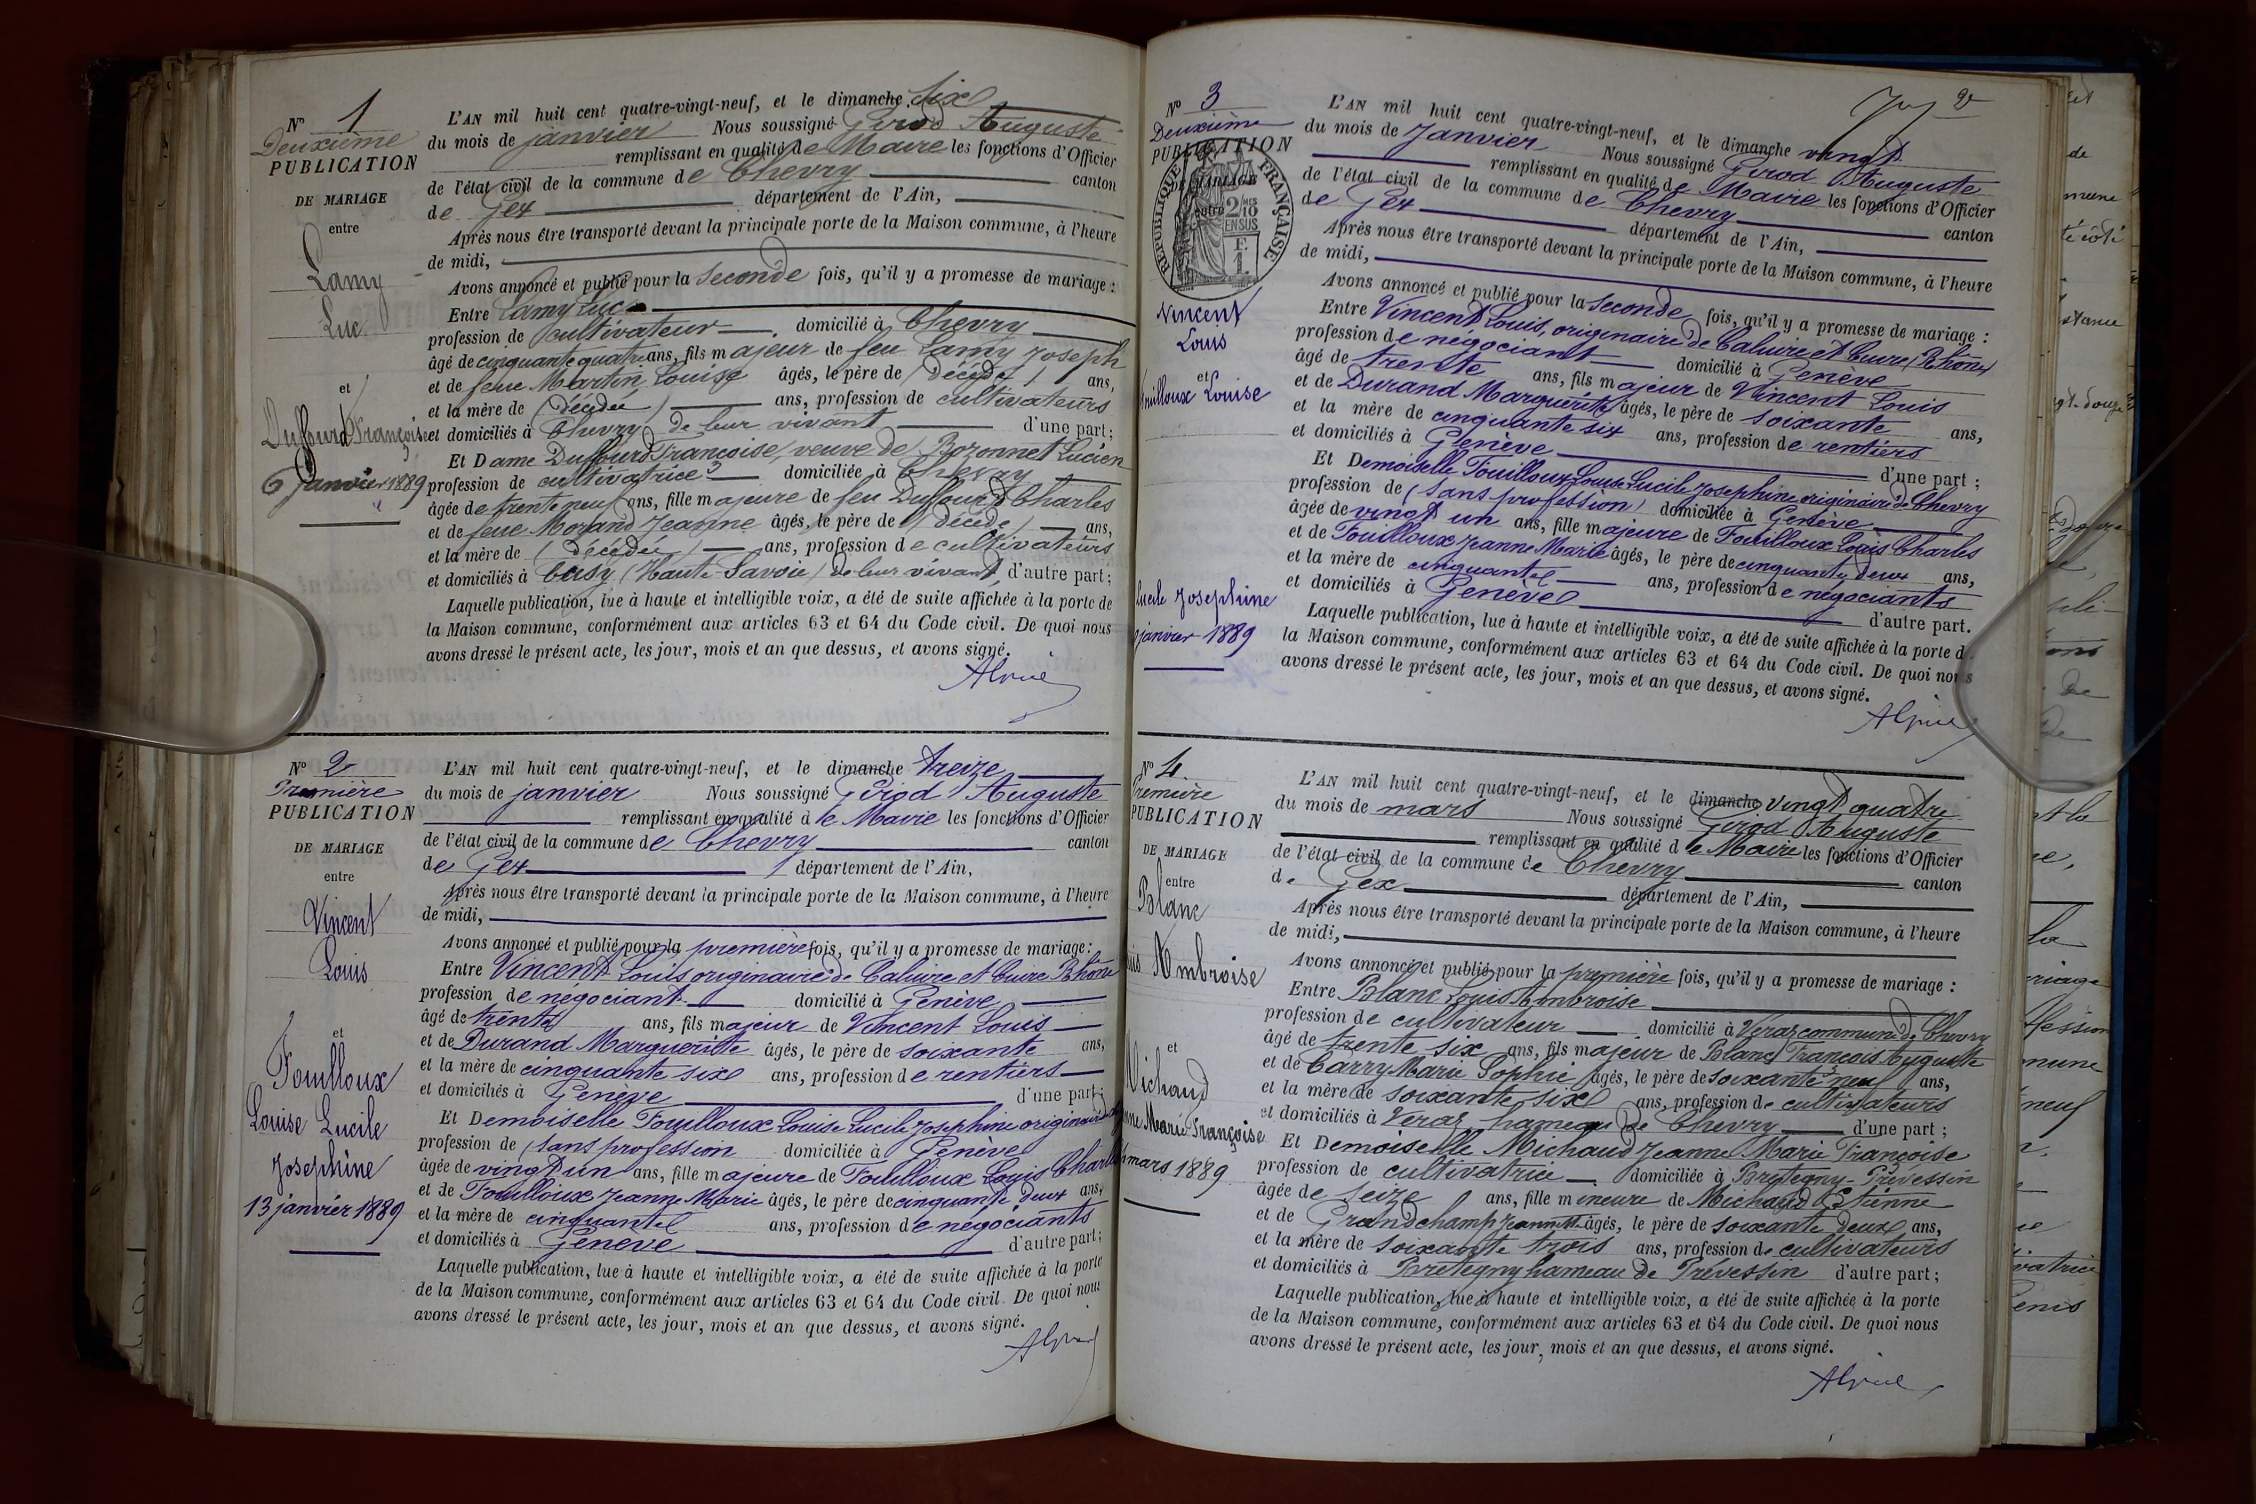 N° 1
Deuxième
PUBLICATION
DE MARIAGE
entre
Lamy
Luc
et
Duffourd Françoise
6 janvier 1889
L'AN mil huit cent quatre-vingt-neuf, et le dimanche six
du mois de janvier Nous soussigné Girod Auguste
remplissant en qualité de Maire les fonctions d'Officier
de l'état civil de la commune de Chevry canton
de Gex département de l'Ain,
Après nous être transporté devant la principale porte de la Maison commune, à l'heure
de midi,
Avons annoncé et publié pour la seconde fois, qu'il y a promesse de mariage :
Entre Lamy Luc
profession de cultivateur domicilié à Chevry
âgé de cinquante quatre ans, fils majeur de feu Lamy Joseph
et de feue Martin Louise âgés, le père de (décédé) ans,
et la mère de (décédée) ans, profession de cultivateurs
et domiciliés à Chevry de leur vivant d'une part;
Et Dame Duffourd Françoise, veuve de Bozonnet Lucien
profession de cultivatrice domiciliée à Chevry
âgée de trente neuf ans, fille majeure de feu Duffourd Charles
et de feue Morand Jeanne âgés, le père de (décédé) ans,
et la mère de (décédée) ans, profession de cultivateurs
et domiciliés à Cusy (Haute Savoie) de leur vivant, d'autre part;
Laquelle publication, lue à haute et intelligible voix, a été de suite affichée à la porte de
la Maison commune, conformément aux articles 63 et 64 du Code civil. De quoi nous
avons dressé le présent acte, les jour, mois et an que dessus, et avons signé.
N° 2
Première
PUBLICATION
DE MARIAGE
entre
Vincent
Louis
et
Fouilloux
Louise Lucile
Josephine
13 janvier 1889
L'AN mil huit cent quatre-vingt-neuf, et le dimanche treize
du mois de janvier Nous soussigné Girod Auguste
remplissant en qualité d le Maire les fonctions d'Officier
de l'état civil de la commune de Chevry canton
de Gex département de l'Ain,
Après nous être transporté devant la principale porte de la Maison commune, à l'heure
de midi,
Avons annoncé et publié pour la première fois, qu'il y a promesse de mariage :
Entre Vincent Louis originaire de Caluire et Cuire Rhône
profession de négociant domicilié à Genève
âgé de trente ans, fils majeur de Vincent Louis
et de Durand Marguerite âgés, le père de soixante ans,
et la mère de cinquante six ans, profession de rentiers
et domiciliés à Genève d'une part;
Et Demoiselle Fouilloux Louise Lucile Josephine originaire
profession de (sans profession domiciliée à Genève
âgée de vingt un ans, fille majeure de Fouilloux Louis Charles
et de Fouilloux Jeanne Marie âgés, le père de cinquante deux ans,
et la mère de cinquante ans, profession de négociants
et domiciliés à Genève d'autre part;
Laquelle publication, lue à haute et intelligible voix, a été de suite affichée à la porte
de la Maison commune, conformément aux articles 63 et 64 du Code civil. De quoi nous
avons dressé le présent acte, les jour, mois et an que dessus, et avons signé.
2
N° 3
Deuxième
PUBLICATION
DE MARIAGE
entre
RÉPUBLIQUE FRANÇAISE
2/10 EN SUS
F. 1
Vincent
Louis
et
Fouilloux Louise
Lucile Josephine
janvier 1889
L'AN mil huit cent quatre-vingt-neuf, et le dimanche vingt
du mois de janvier Nous soussigné Girod Auguste
remplissant en qualité de Maire les fonctions d'Officier
de l'état civil de la commune de Chevry canton
de Gex département de l'Ain,
Après nous être transporté devant la principale porte de la Maison commune, à l'heure
de midi,
Avons annoncé et publié pour la seconde fois, qu'il y a promesse de mariage :
Entre Vincent Louis, originaire de Caluire et Cuire (Rhône)
profession de négociant domicilié à Genève
âgé de trente ans, fils majeur de Vincent Louis
et de Durand Marguerite âgés, le père de soixante ans,
et la mère de cinquante six ans, profession de rentiers
et domiciliés à Genève d'une part;
Et Demoiselle Fouilloux Louise Lucile Josephine originaire de Chevry
profession de (sans profession) domiciliée à Genève
âgée de vingt un ans, fille majeure de Fouilloux Louis Charles
et de Fouilloux Jeanne Marie âgés, le père de cinquante deux ans,
et la mère de cinquante ans, profession de négociants
et domiciliés à Genève d'autre part.
Laquelle publication, lue à haute et intelligible voix, a été de suite affichée à la porte d
la Maison commune, conformément aux articles 63 et 64 du Code civil. De quoi nous
avons dressé le présent acte, les jour, mois et an que dessus, et avons signé.
N° 4
Première
PUBLICATION
DE MARIAGE
entre
Blanc
Ambroise
et
Michaud
Marie Françoise
mars 1889
L'AN mil huit cent quatre-vingt-neuf, et le dimanche vingt quatre
du mois de mars Nous soussigné Girod Auguste
remplissant en qualité d le Maire les fonctions d'Officier
de l'état civil de la commune de Chevry
de Gex canton
département de l'Ain,
Après nous être transporté devant la principale porte de la Maison commune, à l'heure
de midi,
Avons annoncé et publié pour la première fois, qu'il y a promesse de mariage :
Entre Blanc Louis Ambroise
profession de cultivateur domicilié à Veraz commune de Chevry
âgé de trente six ans, fils majeur de Blanc François Auguste
et de Carry Marie Sophie âgés, le père de soixante neuf ans,
et la mère de soixante six ans, profession de cultivateurs
et domiciliés à Veraz hameau de Chevry d'une part;
Et Demoiselle Michaud Jeanne Marie Françoise
profession de cultivatrice domiciliée à Bretegny-Prévessin
âgée de seize ans, fille mineure de Michaud Etienne
et de Grandchamp Jeannette âgés, le père de soixante deux ans,
et la mère de soixante trois ans, profession de cultivateurs
et domiciliés à Bretegny hameau de Prévessin d'autre part;
Laquelle publication, lue à haute et intelligible voix, a été de suite affichée à la porte
de la Maison commune, conformément aux articles 63 et 64 du Code civil. De quoi nous
avons dressé le présent acte, les jour, mois et an que dessus, et avons signé.